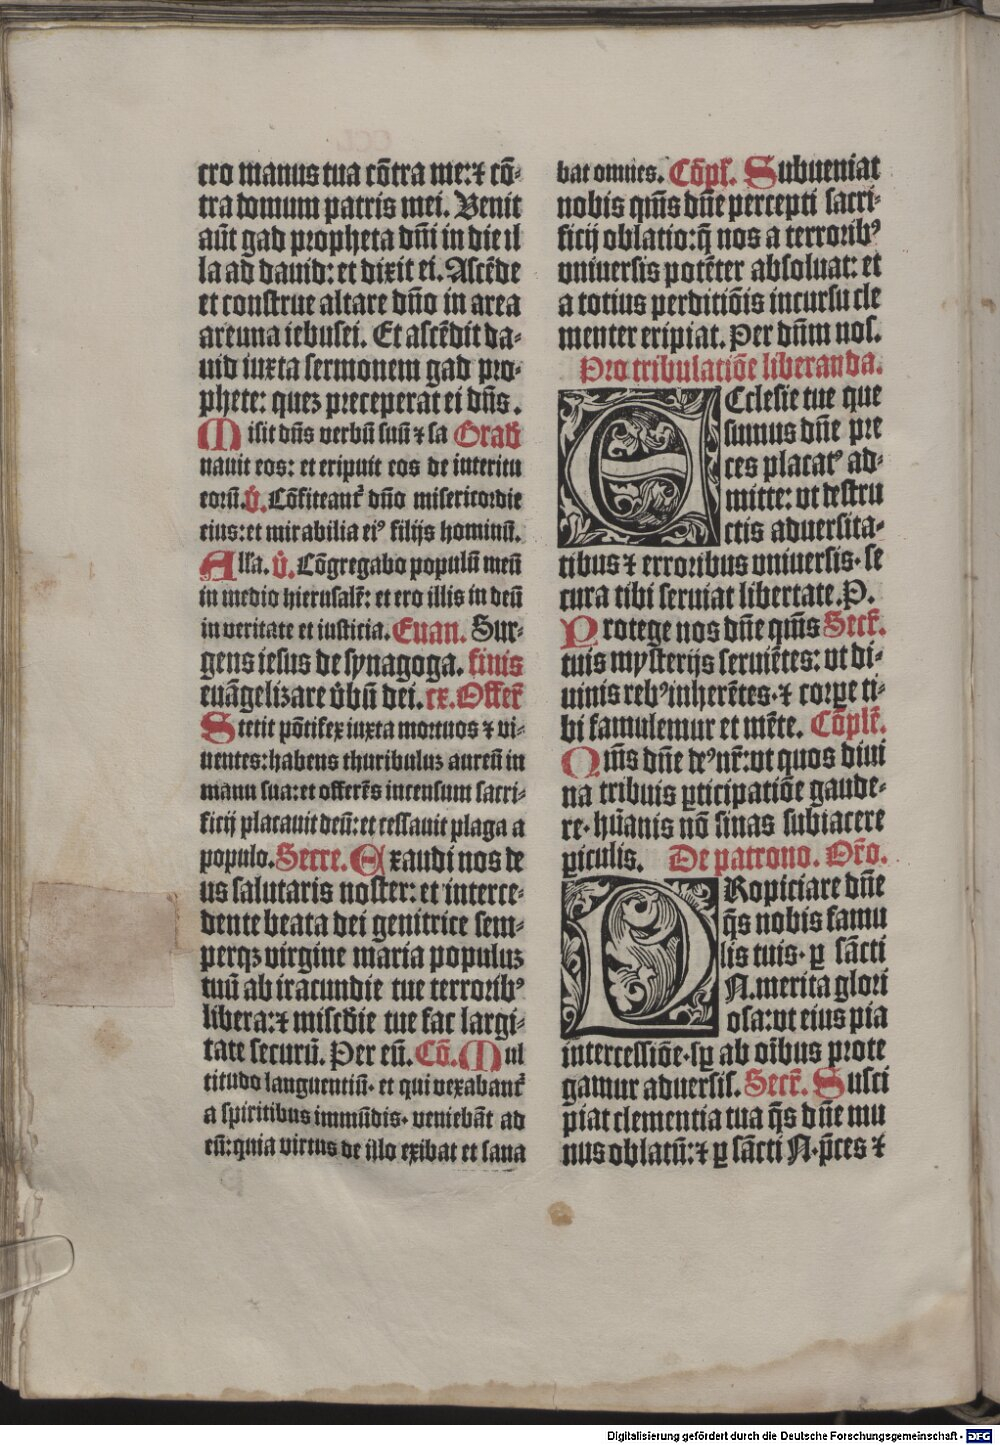 cro manus tua cõtra me:⁊ cõ-
tra domum patris mei. Venit
aũt gad propheta dñi in die il
la ad dauid: et dixit ei. Ascẽde
et construe altare dño in area
areuna iebusei. Et ascẽdit da-
uid iuxta sermonem gad pro-
phete: quez preceperat ei dñs.
Misit dñs verbũ suũ ⁊ sa Grad̃
nauit eos: et eripuit eos de interitu
eorũ. V̊. Cõfiteant᷑ dño misericordie
eius: et mirabilia eiꝰ filijs hominũ.
Alľa. V̊. Cõgregabo populũ meũ
in medio hierusalẽ: et ero illis in deũ
in veritate et iusticia. Euan. Sur-
gens iesus de synagoga. finis
euãgelizare v̊bũ dei. rx. Offer̃
Stetit põtifex iuxta mortuos ⁊ vi-
uentes: habens thuribuluz aureũ in
manu sua: et offerẽs incensum sacri-
ficij placauit deũ: et cessauit plaga a
populo. Secre. Exaudi nos de
us salutaris noster: et interce-
dente beata dei genitrice sem-
perqꝫ virgine maria populuz
tuũ ab iracundie tue terroribꝰ
libera: ⁊ miscďie tue fac largi-
tate securũ. Per eũ. Cõ. Mul
titudo languentiũ· et qui vexabant᷑
a spiritibus immũdis· veniebãt ad
eũ: quia virtus de illo exibat et sana
bat omnes. Cõpľ. Subueniat
nobis qm̃s dñe percepti sacri-
ficij oblatio: q̃ nos a terroribꝰ
vniuersis potẽter absoluat: et
a totius perditiõis incursu cle
menter eripiat. Per dñm nos.
Pro tribulatiõe liberanda.
ECclesie tue que
sumus dñe pre
ces placatꝰ ad-
mitte: vt destru
ctis aduersita-
tibus ⁊ erroribus vniuersis· se
cura tibi seruiat libertate. P.
Protege nos dñe qm̃s Secr̃.
tuis mysterijs seruiẽtes: vt di-
uinis rebꝰ inherẽtes· ⁊ corꝑe ti-
bi famulemur et mẽte. Cõplẽ.
Qm̃s dñe deꝰ nr̃: vt quos diui
na tribuis ꝑticipatiõe gaude-
re· hũanis nõ sinas subiacere
ꝑiculis. De patrono. Or̃o.
PRopiciare dñe
q̃s nobis famu
lis tuis· ꝑ sãcti
N. merita glori
osa: vt eius pia
intercessiõe· sꝑ ab oĩbus prote
gamur aduersis. Secr̃. Susci
piat clementia tua q̃s dñe mu
nus oblatũ: ⁊ ꝑ sãcti N· p̃ces ⁊
Digitalisierung gefördert durch die Deutsche Forschungsgemeinschaft - DFG